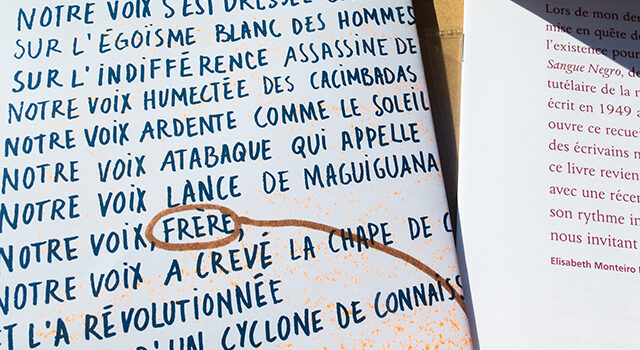 NOTRE VOIX S'EST DRESSÉE
SUR L'ÉGOÏSME BLANC DES HOMMES
SUR L'INDIFFÉRENCE ASSASSINE DE
NOTRE VOIX HUMECTÉE DES CACIMBADAS
NOTRE VOIX ARDENTE COMME LE SOLEIL
NOTRE VOIX ATABAQUE QUI APPELLE
NOTRE VOIX LANCE DE MAGUIGUANA
NOTRE VOIX, FRÈRE,
NOTRE VOIX A CREVÉ LA CHAPE DE C
ET L'A RÉVOLUTIONNÉE
D'UN CYCLONE DE CONNAISS
Lors de mon der
mise en quête d
l'existence pour
Sangue Negro, de
tutélaire de la n
écrit en 1949 a
ouvre ce recue
des écrivains n
ce livre revien
avec une récen
son rythme in
nous invitant
Elisabeth Monteiro